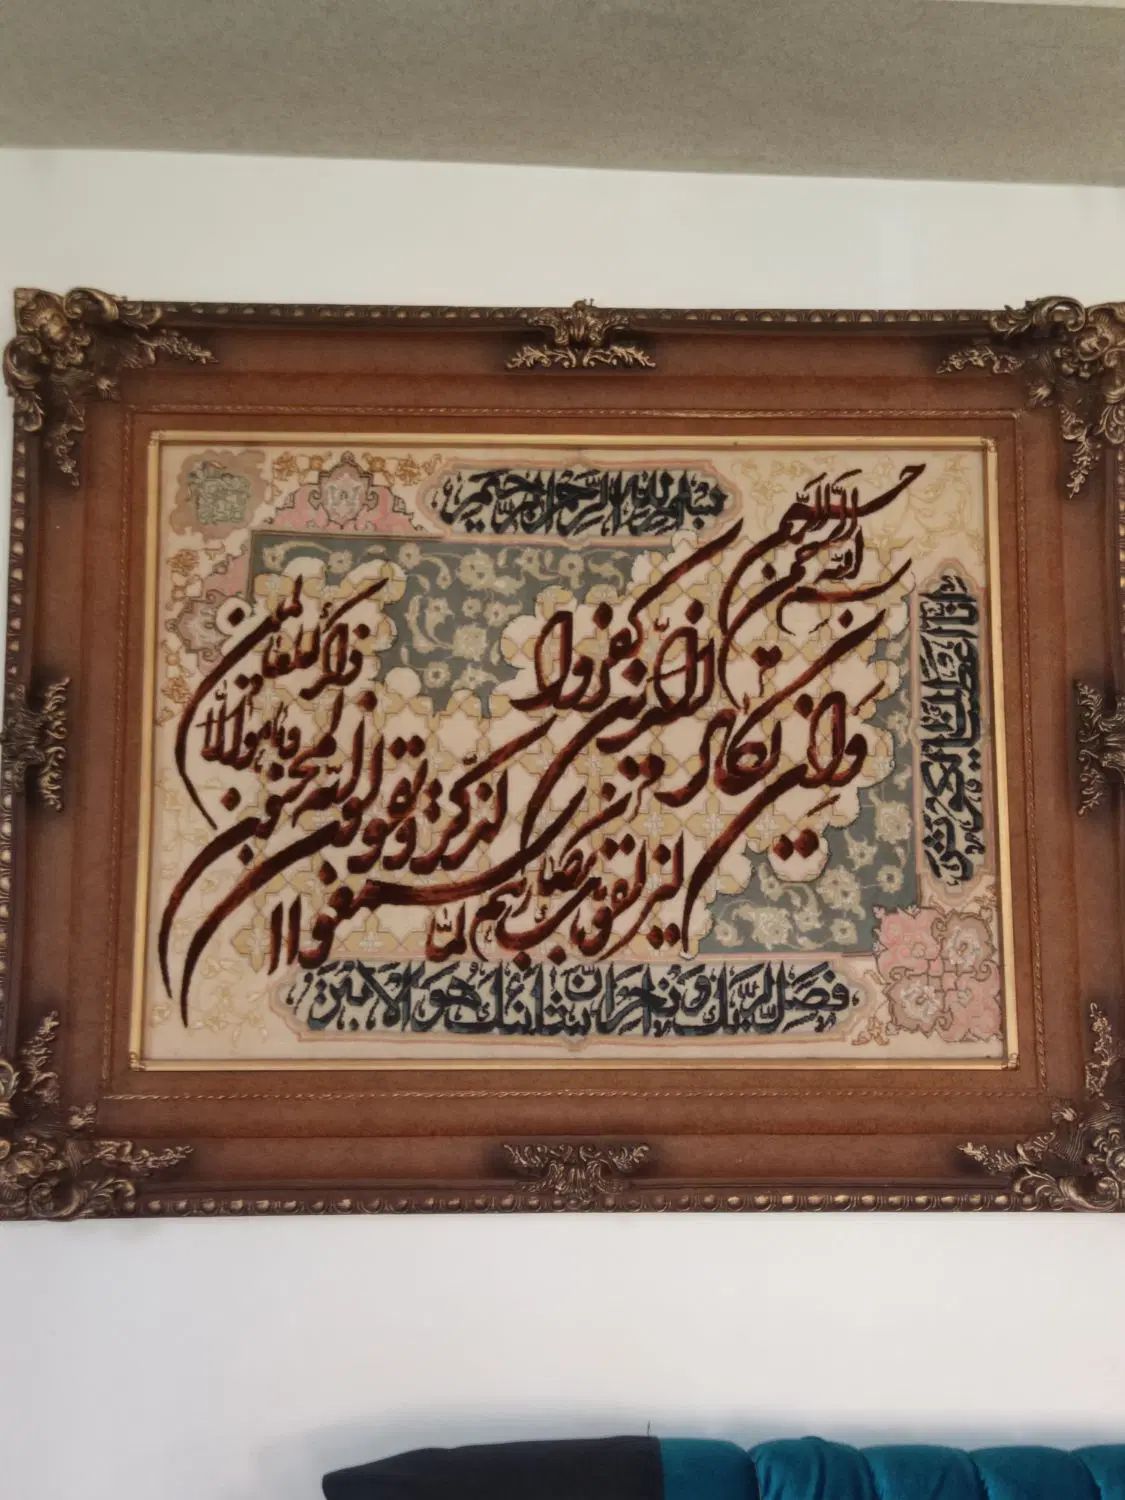 بسم الله الرحمن الرحیم
انا اعطیناک الکوثر
فصل لربک و انحر ان شانئک هو الابتر
بسم الله الرحمن الرحیم
وان یکاد الذین کفروا
لیزلقونک بابصارهم لما
سمعوا الذکر و یقولون انه لمجنون
و ما هو الا ذکر للعالمین